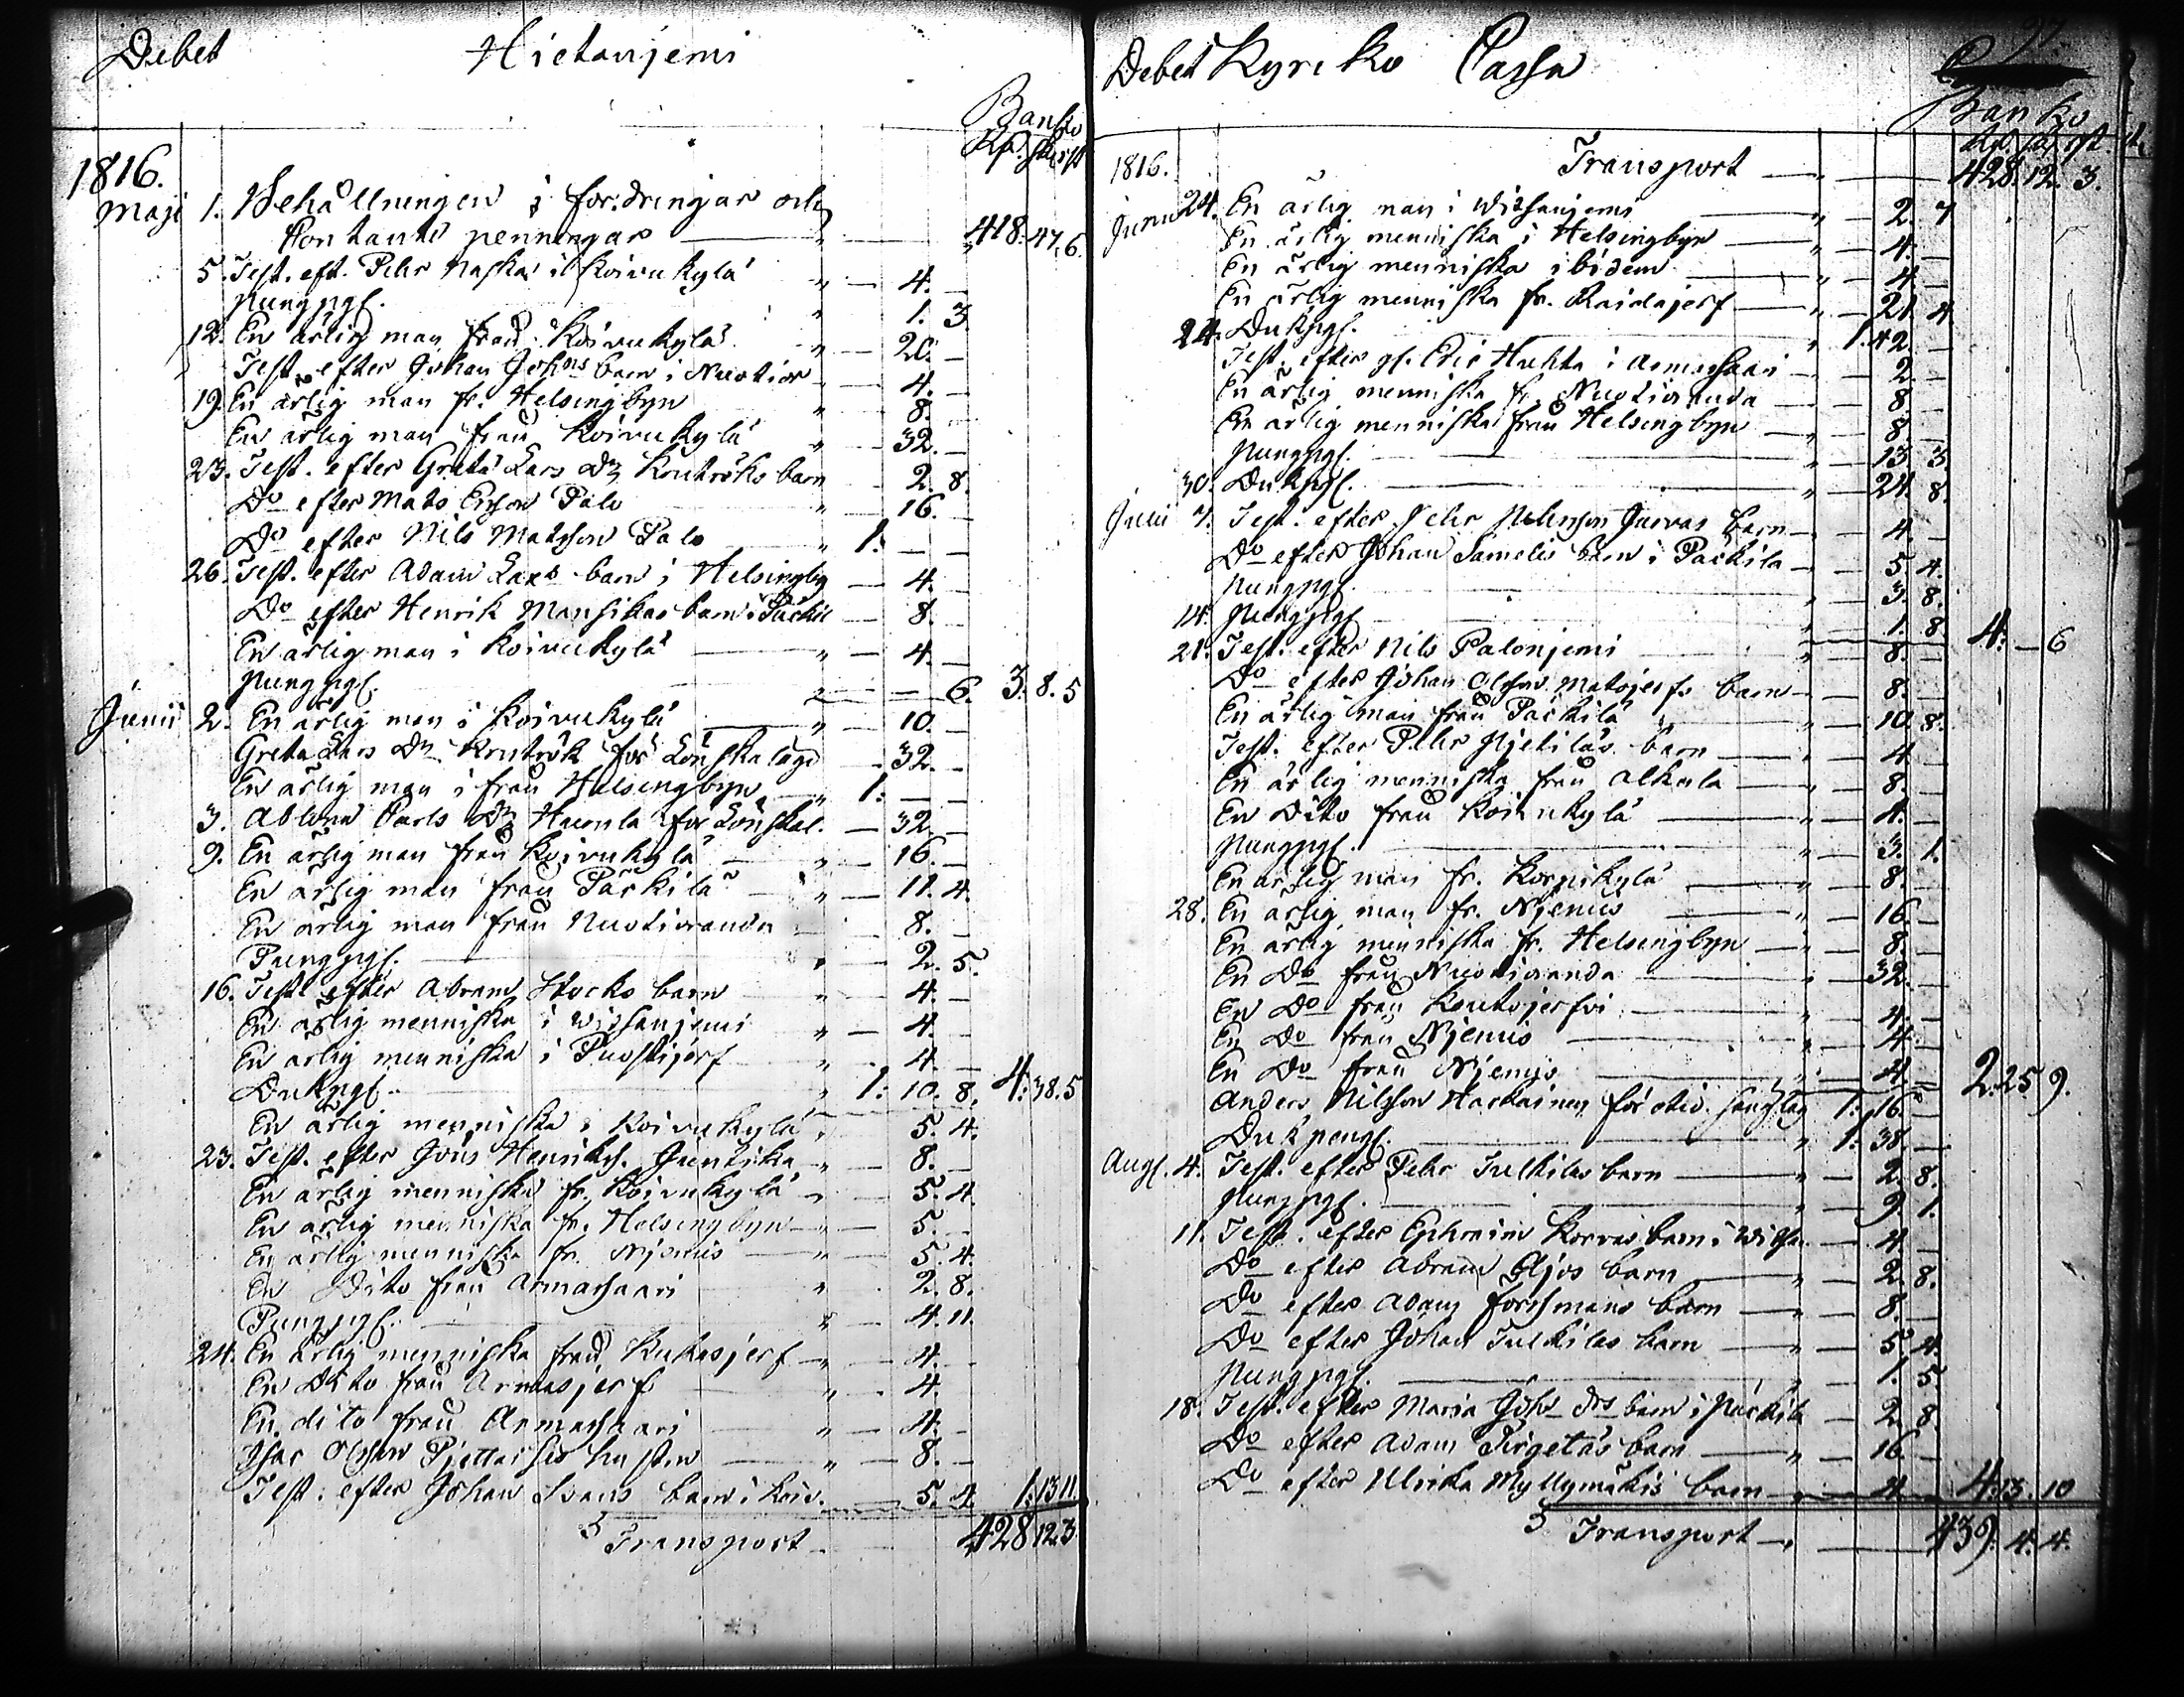 Debet Hietanjemi
Banko
Rd. sk. rst
1816.
Maji 1. Behållningen i fordringar och
Contante penningar — 418. 47. 6.
5. Test. eft. Pehr Naska i Koivukylä " — 4. —
Pungpgl. " 1. 3
12. En ärlig man från Koivukylä " — 20. —
Test. efter Johan Johns barn i Nuotior " 4. —
19. En ärlig man fr. Helsingbyn " 8. —
En ärlig man från Koivukylä " 32. —
23. Test. efter Greta Lars Dr Kruträks barn 2. 8.
Do efter Mats Ersson Palo " 16. —
Do efter Nils Matsson Palo " 1: — —
26. Test. efter Adam Lars barn i Helsingby — 4. —
Do efter Henrik Mansikas barn i Päckil — 8. —
En ärlig man i Koivukylä " — 4. —
Pungpgl. — — 6. 3. 8. 5
Junii 2. En ärlig man i Koivukylä " 10. —
Greta Lars Dr Kruträk för Lönskaläge — 32. —
En ärlig man i från Helsingbyn " 1: — —
3. Carls Dr för Lönskal. — 32. —
9. En ärlig man från Koivukylä " — 16. —
En ärlig man från Päckilä " — 11. 4.
En ärlig man från Nuotioranda 8. —
Pungpgl. — " — 2. 5.
16. Test. efter Abram Stocks barn " 4. —
En ärlig menniska i Witsanjemi " — 4. —
En ärlig menniska i Puostijerf " 4. —
Dukpgl. " 1: 10. 8. 4: 38. 5
En ärlig menniska i Koivukylä " 5. 4.
23. Test. efter Jöns Henriks. " — 8. —
En ärlig menniska fr. Koivukylä " — 5. 4.
En ärlig menniska fr. Helsingbyn " — 5. —
En ärlig menniska fr. Njemis " — 5. 4.
En Dito från Armasaari " 2. 8.
Pungpgl. — " — 4. 11.
24. En ärlig menniska från Kukasjerf " — 4. —
En Dito från Armasjerf " . 4.
En dito från Armasaari " — 4. —
Isac Olsson hustru " — 8. —
Test. efter Johan Svans barn i Koiv. — 5. 4. 1: 13 11.
Transport 428. 12. 3.
Debet Kyrcko Cassa
97
Banko
Rd. sk. rst.
1816. Transport — " — 428. 12. 3.
Junii 24. En ärlig man i Witsanjemi — " — 2. 7
En ärlig menniska i Helsingbyn — " — 4. —
En ärlig menniska ibidem — " — 4
En ärlig menniska fr. Raidajerf — " — 21. 4.
24. Dukpgl. " 1. 42. —
Test. efter gl. Eric Huhta i Armasaari — 2. —
En ärlig menniska fr. Nuotioranda — 8. —
En ärlig menniska från Helsingbyn — " — 8. —
Pungpgl. — " — 13. 3.
30. Dukpgl. — " — 24. 8.
Julii 7. Test. efter Pehr barn — 4. —
Do efter Johan Samelis barn i Päckilä — 5. 4.
Pungpgl. " — 3. 8.
14. Pungpgl. " — 1. 8 4: — 6
21. Test. efter Nils Palonjemi " 8. —
Do efter Johan Olofss. Matojerfs barn — 8. —
En ärlig man från Päckilä " 10. 8.
Test. efter Pehr Njetiläs barn " — 4 —
En ärlig menniska från Alkula — " — 8. —
En Dito från Koivukylä — " — 4. —
Pungpgl. — " — 3. 1.
En ärlig man fr. Korpikylä — " — 8. —
28. En ärlig man fr. Njemis — " — 16. —
En ärlig menniska fr. Helsingbyn — " — 8. —
En Do från Nuotioranda — " — 32. —
En Do från Kouhajerfvi — " — 4. —
En Do från Njemis — " — 4. —
En Do från Njemis " 4 — 2: 25 9.
Anders Nilsson 1: 16. —
Dukpengl. — " 1: 38 —
Augl. 4. Test. efter Pehr Tulkilas barn — " — 2. 8.
Pungpgl. — " — 9 1.
11. Test. efter Ephraim Korvas barn i Witsa. — 4 —
Do efter Abram Äijos barn — " — 2. 8.
Do efter Adam Forssmans barn — " — 8. —
Do efter Johan Tulkilas barn — " — 5. 4.
Pungpgl. — " — 1. 5.
18. Test. efter Maria Johs drs barn i Päckilä — 2. 8
Do efter Adam Pirgetäs barn — " — 16 —
Do efter Ulrika Myllymäkis barn — " — 4 — 4: 13. 10
Transport — " — 439. 4. 4.